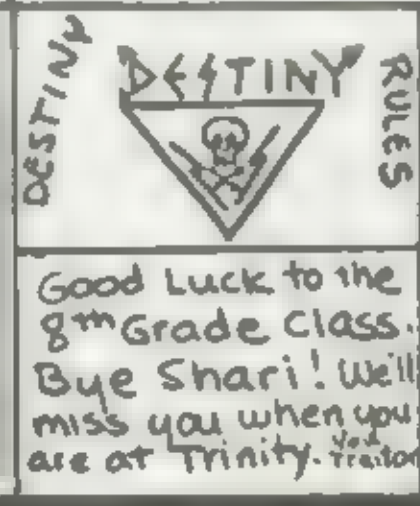 DESTINY
DESTINY
RULES
Good Luck to the
8th Grade Class.
Bye Shari! We'll
miss you when you
are at Trinity. You
Traitor